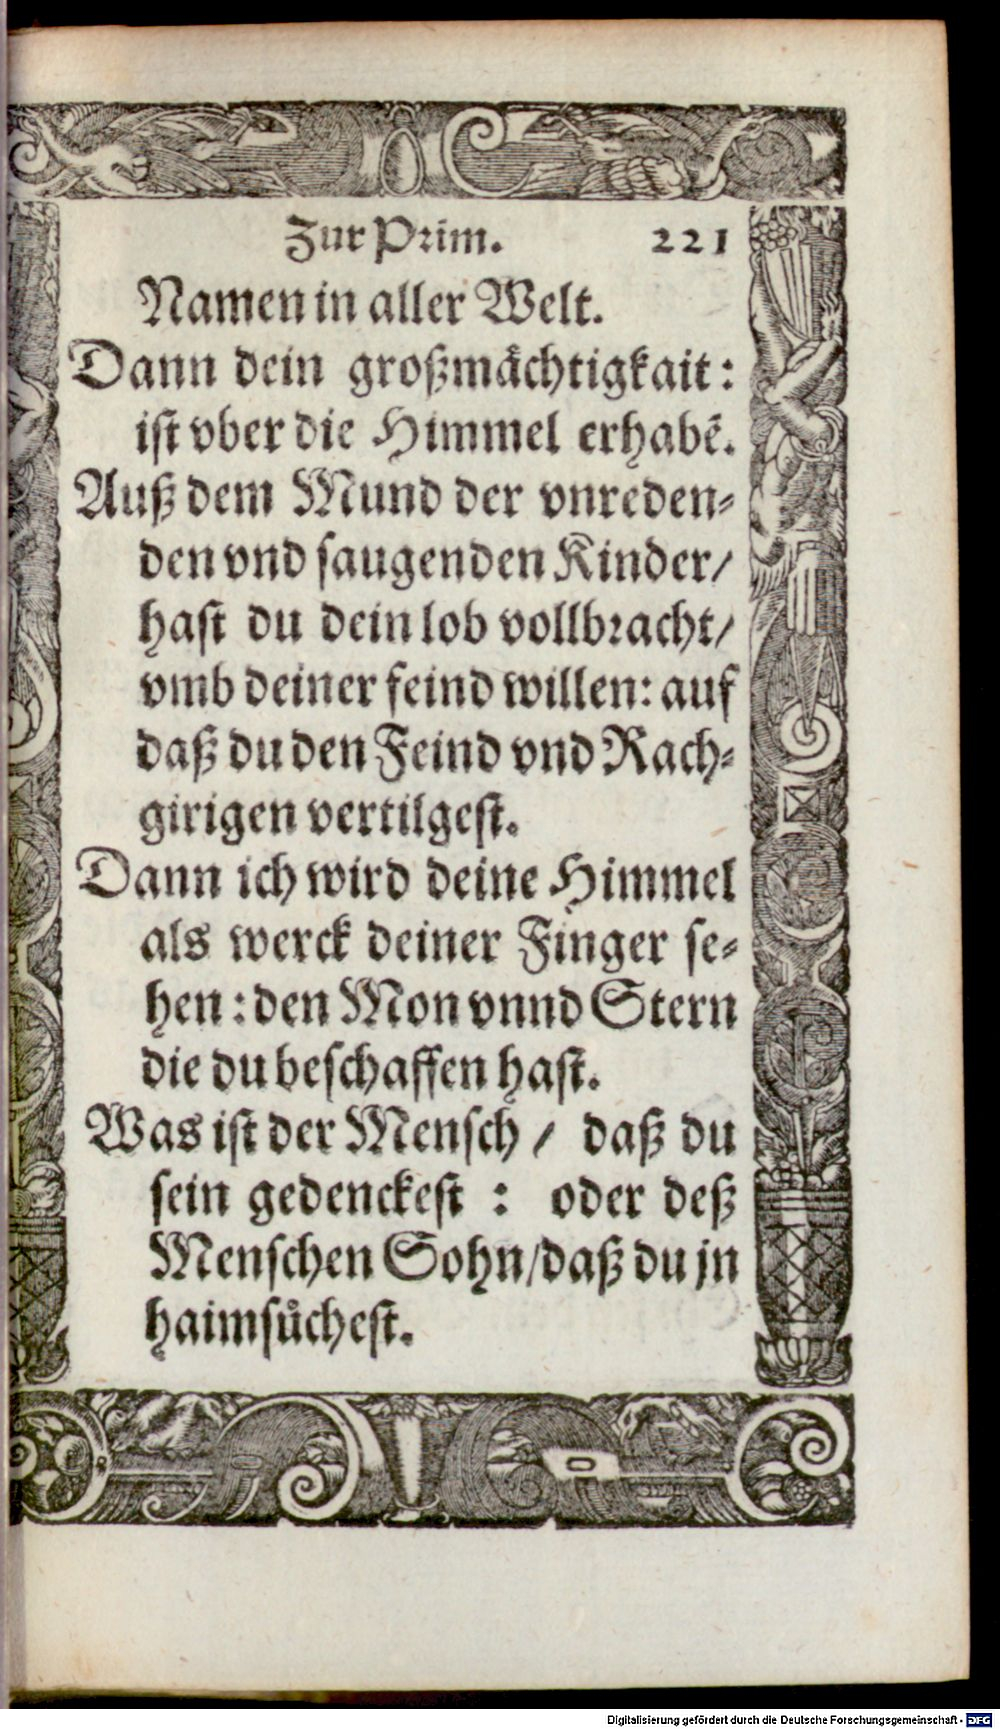 Zur Prim. 221
Namen in aller Welt.
Dann dein großmaͤchtigkait:
ist vber die Himmel erhabẽ.
Auß dem Mund der vnreden⸗
den vnd saugenden Kinder/
hast du dein lob vollbracht/
vmb deiner feind willen: auf
daß du den Feind vnd Rach⸗
girigen vertilgest.
Dann ich wird deine Himmel
als werck deiner Finger se⸗
hen: den Mon vnnd Stern
die du beschaffen hast.
Was ist der Mensch / daß du
sein gedenckest : oder deß
Menschen Sohn/daß du jn
haimsůchest.
Digitalisierung gefördert durch die Deutsche Forschungsgemeinschaft - DFG